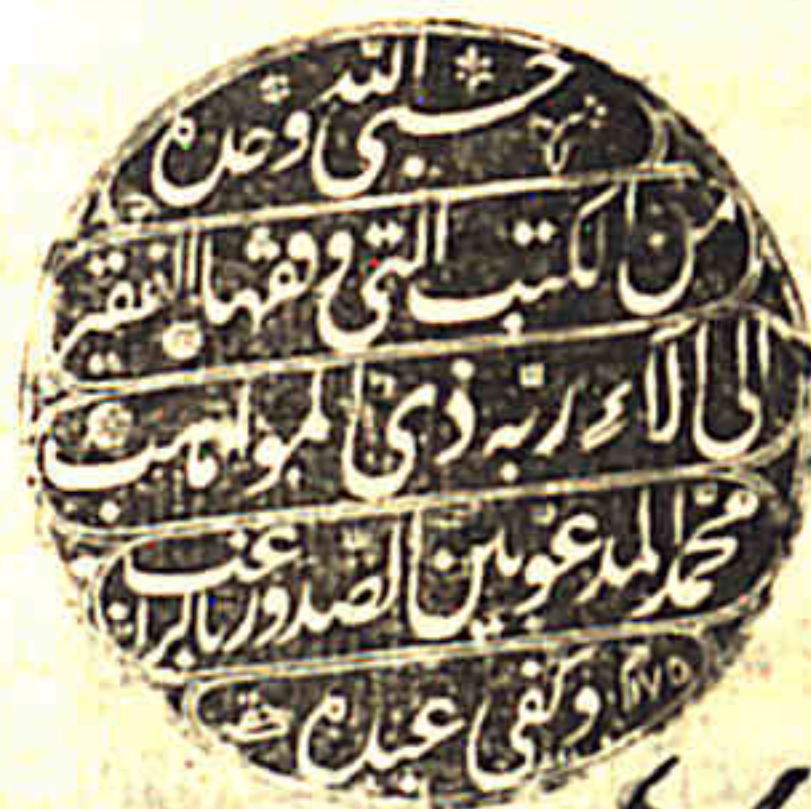 حسبى الله وحده
من الكتب التى وقفها الفقير
الى آلاء ربه ذى المواهب
محمد المدعو بين الصدور بالراغب
وكفى عبده ١١٧٥